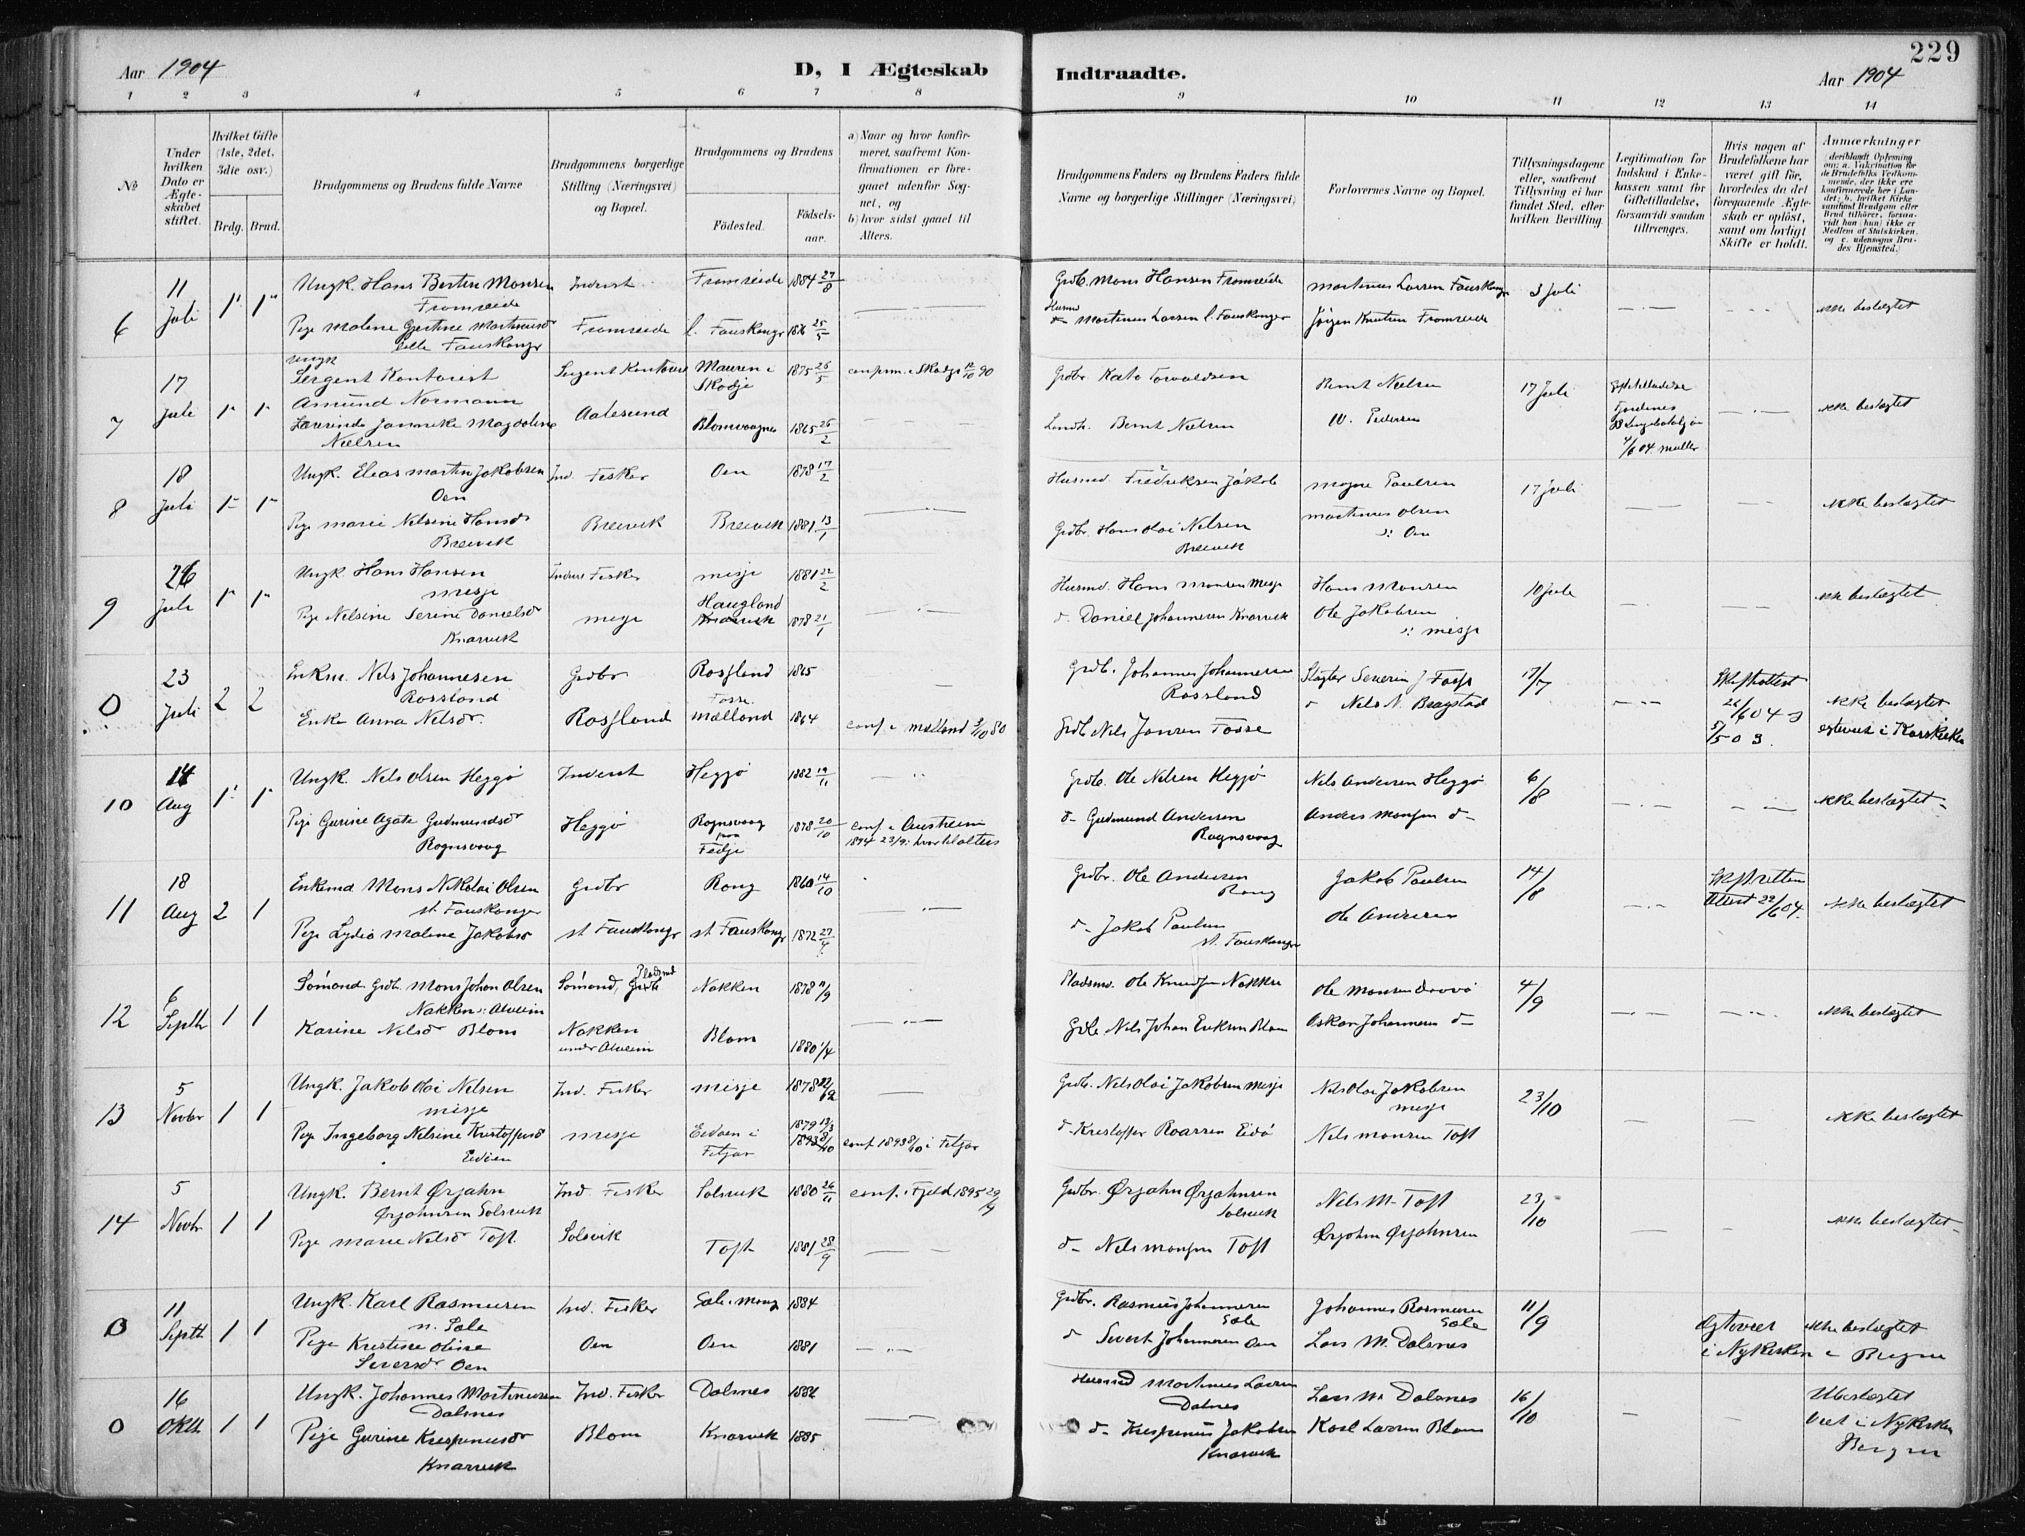 229
Aar 1904
D, I Ægteskab
Indtraadte.
Aar 1904
1 2 3 4 5 6 7 8 9 10 11 12 13 14
No
Under hvilken Dato er Ægteskabet stiftet.
Hvilket Gifte (1ste, 2det, 3die osv.)
Brdg. Brud.
Brudgommens og Brudens fulde Navne
Brudgommens borgerlige Stilling (Næringsvei) og Bopæl.
Brudgommens og Brudens
Fødested.
Fødselsaar.
a) Naar og hvor konfirmeret, saafremt Konfirmationen er foregaaet udenfor Sognet, og
b) hvor sidst gaaet til Alters.
Brudgommens Faders og Brudens Faders fulde Navne og borgerlige Stillinger (Næringsvei)
Forlovernes Navne og Bopæl.
Tillysningsdagene eller, saafremt Tillysning ei har fundet Sted, efter hvilken Bevilling.
Legitimation for Indskud i Enkekassen samt for Giftetilladelse, forsaavidt saadan tiltrænges.
Hvis nogen af Brudefolkene har været gift før, hvorledes da det foregaaende Ægteskab er opløst, samt om lovligt Skifte er holdt.
Anmærkninger
(deriblandt Oplysning om: a. Vakcination for de Brudefolks Vedkommende, der ikke ere konfirmerede her i Landet; b. hvilket Kirkesamfund Brudgom eller Brud tilhører, forsaavidt han (hun) ikke er Medlem af Statskirken, og c. udensogns Brudes Hjemsted.)
6 11 Juli 1 1 Ungk. Hans Bertin Monsen Inderst Fromreide 1884 27/8 Grdb. Mons Hansen Fromreide Martinus Larsen Fauskanger 3 Juli ikke beslægtet
Fromreide
Pige Malene Gjertine Martinusd Fromreide l. Fauskanger 25/5 Husmd Martinus Larsen l. Fauskanger Jørgen Knutsen Fromreide
lille Fauskangr
7 17 Juli 1 1 Ungk Sergent Kontorist Sergent Kontorist Mauren i Skodje 1875 26/5 confirm. i Skodje 12/10 90 Grdbr. Bernt Nielsen 17 Juli Giftetilladelse ikke beslægtet
Amund Normann
Aalesund Blomvaagnes 1865 26/2 Landh. Bernt Nielsen W. Pedersen
Jannike Magdalene Nielsen
8 18 Juli 1 1 Ungk. Elias Martin Jakobsen Ind. Fisker Oen 1878 17/2 Husmd Fredriksen Jakob Mogne Paulsen 17 Juli ikke beslægtet
Oen
Pige Marie Nelsine Hansd Breivik Breivik 1881 13/1 Grdbr. Hans Olai Nilsen Martinus Olsen
Breivik Breivik Oen
9 26 Juli 1 1 Ungk. Hans Hansen Inderst Fisker Misje 1881 22/2 Husmd. Hans Monsen Misje Hans Monsen 10 Juli ikke beslægtet
Misje
Pige Nelsine Serine Danielsd Misje Haugland Knarvik 1878 21/1 d. Daniel Johannesen Knarvik Ole Jakobsen
Knarvik Misje
0 23 Juli 2 2 Enkm. Nils Johannesen Grdbr Rossland 1865 Grdb. Johannes Johannesen Slagter Severin J Fosse 17/7 Skifteattest
Rossland Fosse Rossland
Enke Anna Nelsd. Rossland Mælland 1864 conf. i Mælland 3/10 80 Grdb Nils Jansen Fosse Nils N. Bragstad ikke beslægtet
egteviet i Korskirken
10 14 Aug 1 1 Ungk. Nils Olsen Heggø Inderst Heggø 1882 19/11 Grdb. Ole Nilsen Heggø Nils Andersen Heggø 6/8 ikke beslægtet
Pige Gurine Agate Gudmundsd Heggø Rognsvaag paa Fedje 1878 20/10 conf. i Austrheim 1894 23/9 d. Gudmund Andersen Anders Monsen d
Rognsvaag Rognsvaag
11 18 Aug 2 1 Enkemd Mons Nikolai Olsen Grdbr Rong 1860 14/10 Grdbr. Ole Andersen Jakob Paulsen 14/8 Skifteretten ikke beslægtet
st. Fauskanger Rong Attest 22/6 04.
Pige Lydia Malene Jakobsd st Fauskangr st Fauskangr 1872 27/4 d. Jakob Paulsen Ole Andersen
st. Fauskanger
12 6 Septbr 1 1 Sømand Grdb. Mons Johan Olsen Sømand, Pladsmd Nakken 1878 11/9 Pladsmd. Ole Knudsen Nakken Ole Monsen 4/9 ikke beslægtet
Nakken u: Alveim
Karine Nelsd Blom Nakken under Alveim Blom 1880 1/4 Grdb Nils Johan Eriksen Blom Oskar Johannesen d
13 5 Novbr 1 1 Ungk. Jakob Olai Nilsen Ind. Fisker Misje 1878 Grdb. Nils Olai Jakobsen Misje Nils Olai Jakobsen 23/10 ikke beslægtet
Misje Misje
Pige Ingeborg Nelsine Kristoffersd Misje Eidøen i Fitjar 1879 conf. 1893 8/10 i Fitjar d. Kristoffer Roarsen Eidø Nils Monsen Toft
Eidøen
14 5 Novbr 1 1 Ungk. Bernt Ørjahn Ind. Fisker Solsvik 1880 26/11 conf. i Fjeld 1895 29/9 Grdbr. Ørjahn Ørjahnsen Nils M. Toft 23/10 ikke beslægtet
Ørjahnsen Solsvik Solsvik
Pige Marie Nelsd Toft. Solsvik Toft 1881 28/9 d. Nils Monsen Toft Ørjahn Ørjahnsen
0 11 Septb 1 1 Ungk. Karl Rasmusen Ind. Fisker Sæle i Mang 1884 Grdbr. Rasmus Johannesen Johannes Rasmusen 11/9 Egteviet ikke beslægtet
n. Sæle Sæle Sæle
Pige Kristine Oline Oen Oen 1881 d Sivert Johannesen Oen Lars M. Dalsnes i Nykirken i Bergen
Siversd Oen
0 16 Oktb 1 1 Ungk. Johannes Martinusen Ind. Fisker Dalsnes 1884 Husmd Martinus Larsen Lars M Dalsnes 16/10 Ubeslægtet
Dalsnes Dalsnes
Pige Gurine Krispinusd Blom Knarvik 1885 d. Krispinus Jakobsen Karl Larsen Blom viet i Nykirken
Knarvik Knarvik Bergen